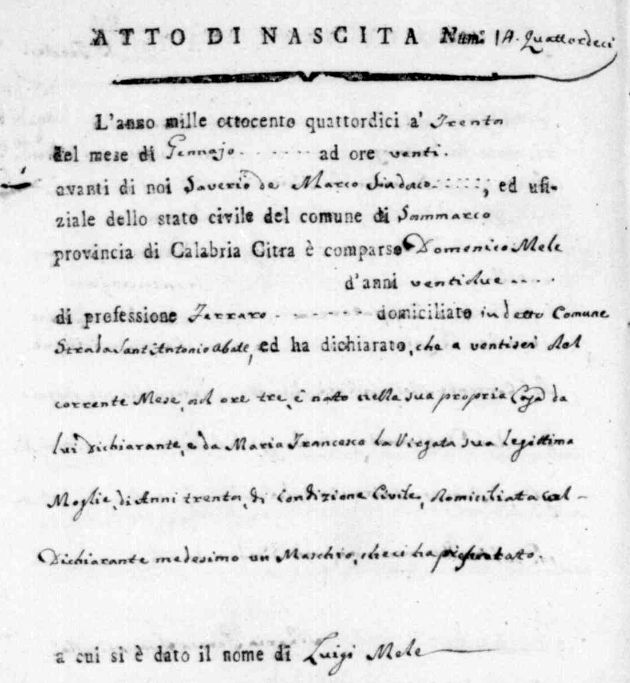 ATTO DI NASCITA Num: 14. Quattordeci
L'anno mille ottocento quattordici a' Trenta
del mese di Gennajo ad ore venti.
avanti di noi Saverio de Marco Sindaco, ed ufi-
ziale dello stato civile del comune di Sammarco
provincia di Calabria Citra è comparso Domenico Mele
d'anni ventidue
di professione Ferraro domiciliato in detto Comune
Strada Sant'Antonio Abate, ed ha dichiarato, che a ventisei del
corrente Mese, ad ore tre, è nato nella sua propria Casa da
lui Dichiarante, e da Maria Francesca La Vergata sua legittima
Moglie, di Anni trenta, di condizione Civile, domiciliata col
Dichiarante medesimo un Maschio, che ci ha presentato.
a cui si è dato il nome di Luigi Mele